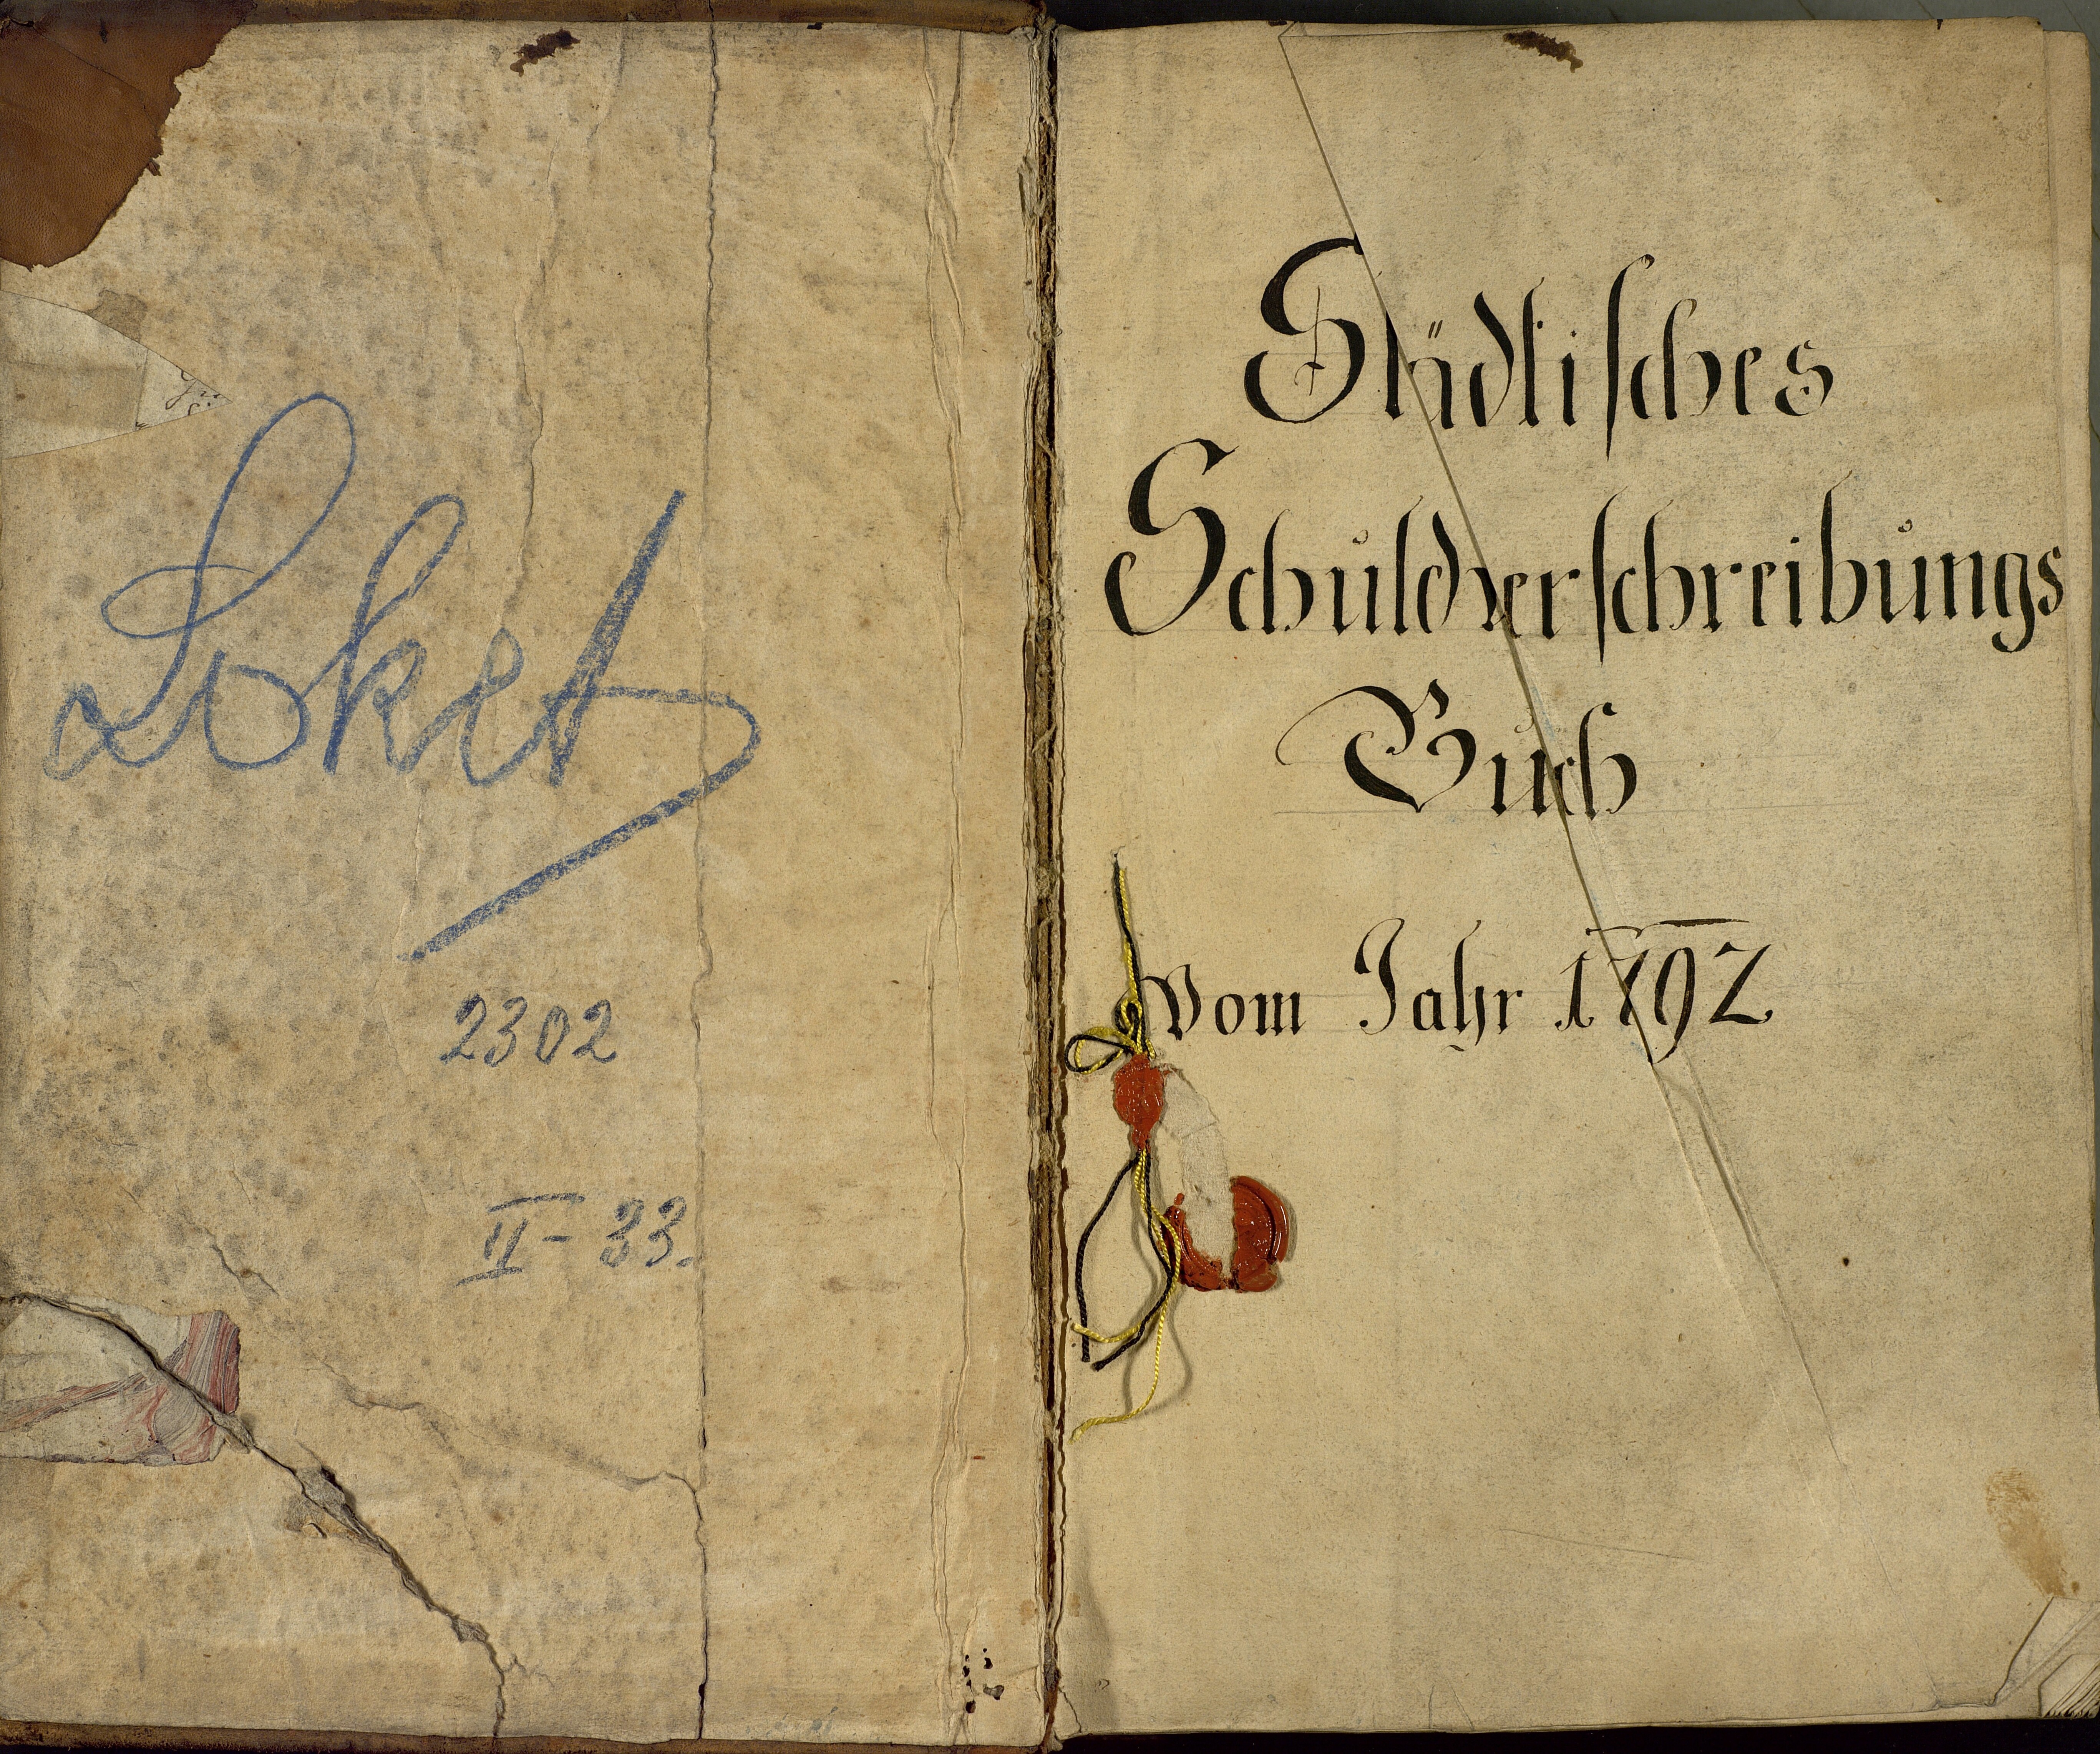 Loket
2302
II - 33.
Städtisches
Schuldverschreibungs
Buch
Vom Jahr 1792